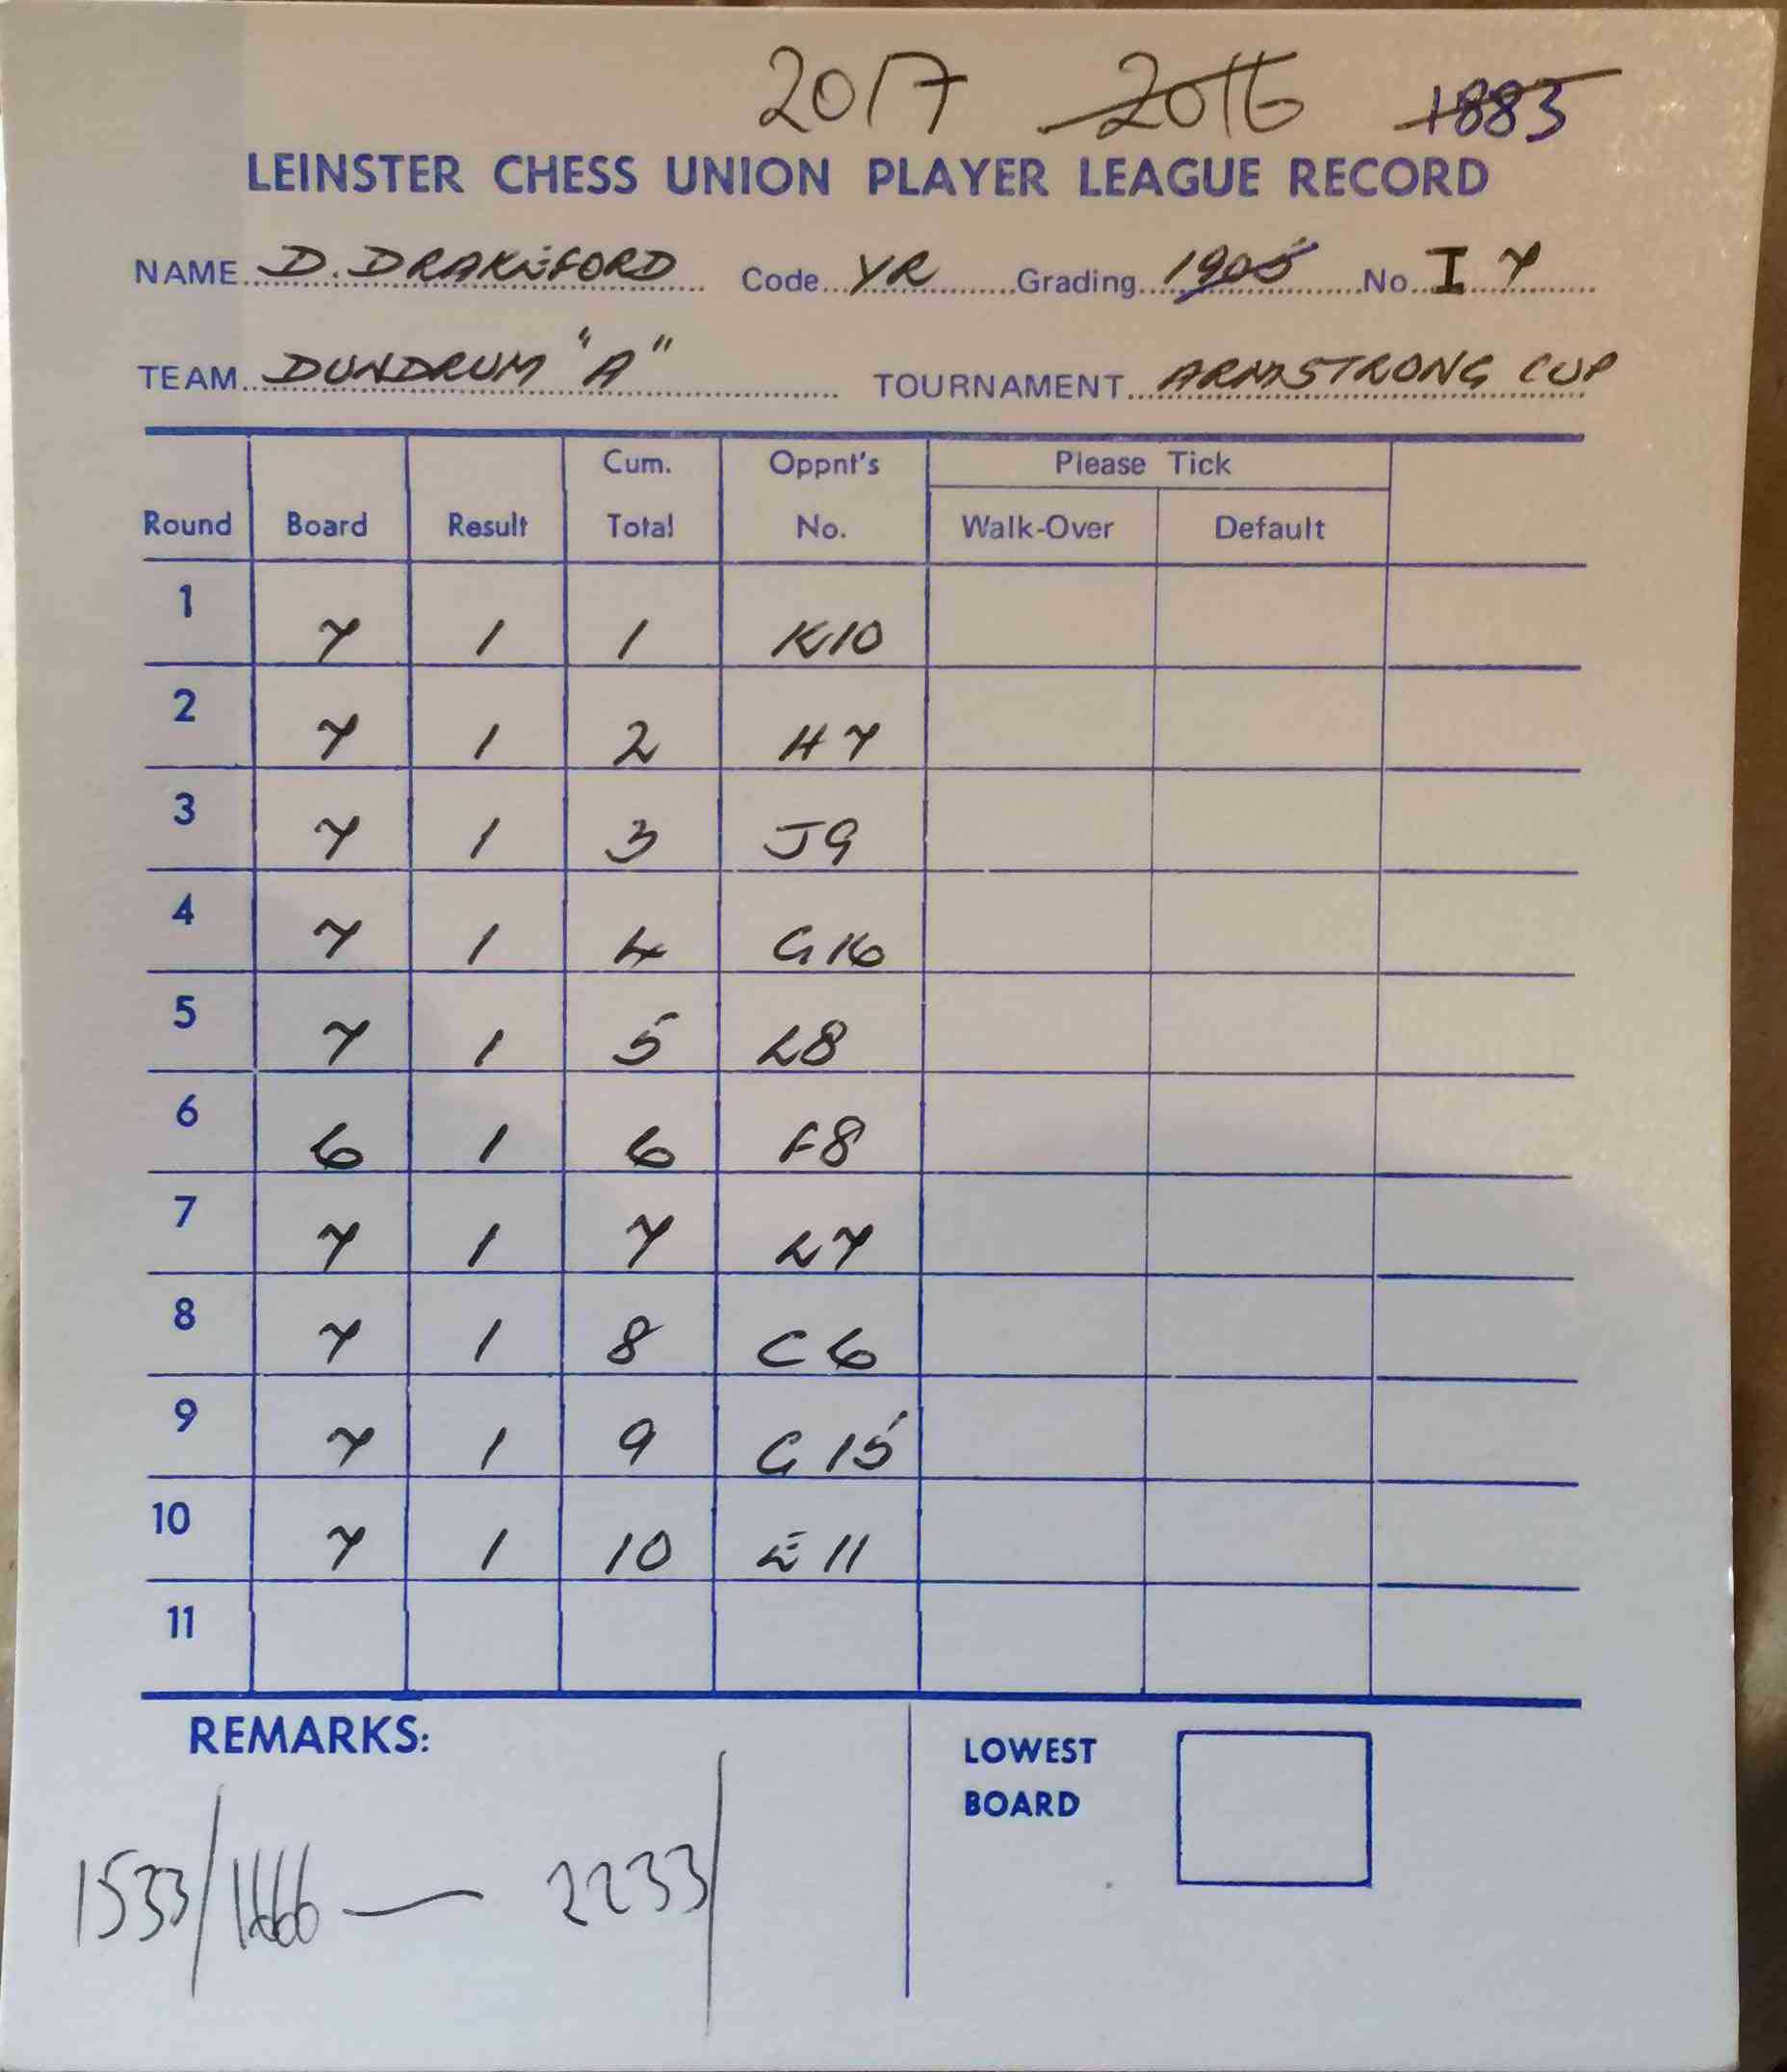 2017 2016 1883
LEINSTER CHESS UNION PLAYER LEAGUE RECORD
NAME D. DRAKEFORD Code YR Grading 1905 No. I 7
TEAM DUNDRUM "A" TOURNAMENT ARMSTRONG CUP
Cum. Oppnt's Please Tick
Round Board Result Total No. Walk-Over Default
1 7 1 1 K10
2 7 1 2 H7
3 7 1 3 J9
4 7 1 4 G16
5 7 1 5 L8
6 6 1 6 F8
7 7 1 7 L7
8 7 1 8 C6
9 7 1 9 G15
10 7 1 10 E11
11
REMARKS: LOWEST
BOARD
1533/1666 — 2233/